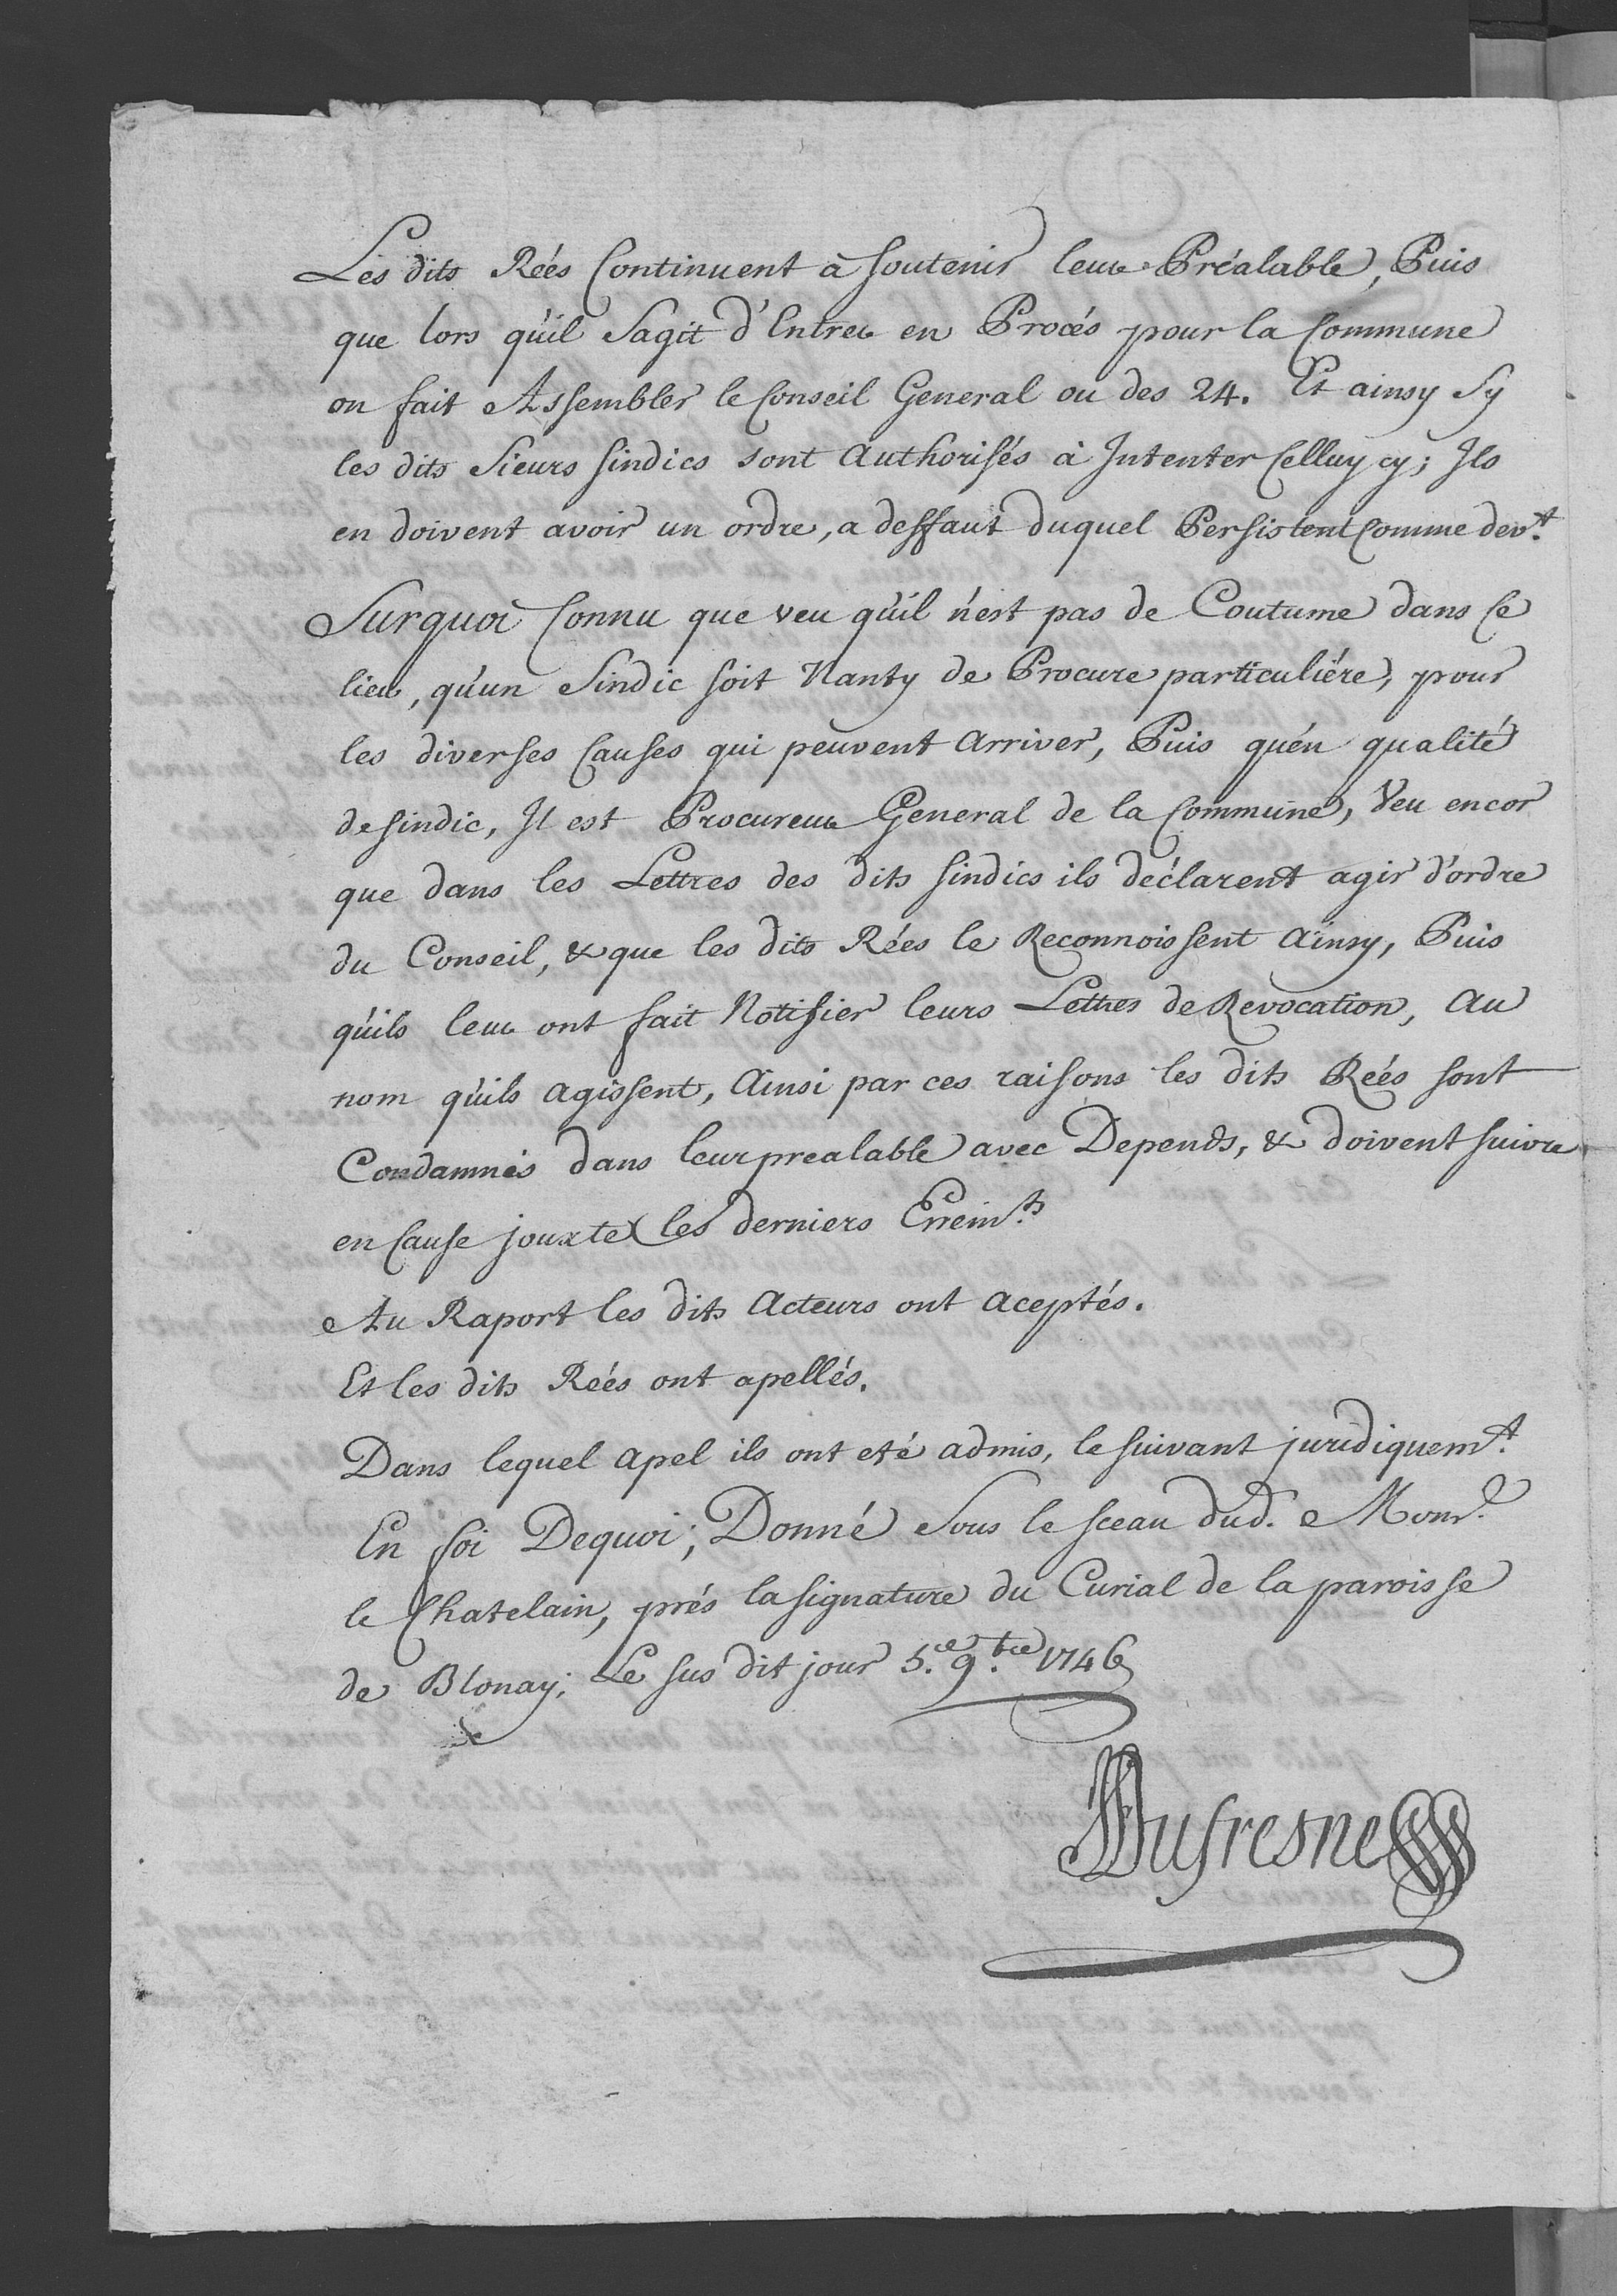 Les dits Rées Continuent à soutenir leur Préalable, Puis
que lors qu'il Sagit d'Entrer en Procés pour la Commune
on fait Assembler le Conseil General ou des 24. Et ainsy Sy
les dits Sieurs sindics sont Authorisés à Intenter Celluy cy; Ils
en doivent avoir un ordre, a deffaut duquel Persistent Comme dev.t
Surquoi Connu que veu qu'il n'est pas de Coutume dans Ce
lieu, qu'un Sindic soit Nanty de Procure particuliére, pour
les diverses Causes qui peuvent Arriver, Puis qu'én qualité
de sindic, Il est Procureur General de la Commune, Veu encor
que dans les Lettres des dits sindics ils déclarent agir d'ordre
du Conseil, & que les dits Rées le Reconnoissent Ainsy, Puis
qu'ils leur ont fait Notifier leurs Lettres de Revocation, Au
nom qu'ils Agissent, Ainsi par ces raisons les dits Rées sont
Condamnés dans leur prealable avec Depends, & doivent suivre
en Cause jouxte les derniers Errem.ts
Au Raport les dits Acteurs ont Aceptés.
Et les dits Rées ont apellés.
Dans lequel Apel ils ont eté admis, le suivant juridiquem.t
En foi Dequoi; Donné Sous le sceau dud. Mons.r
le Chatelain, prés la signature du Curial de la paroisse
de Blonay; Le sus dit jour 5.e 9.bre 1746
Dufresne